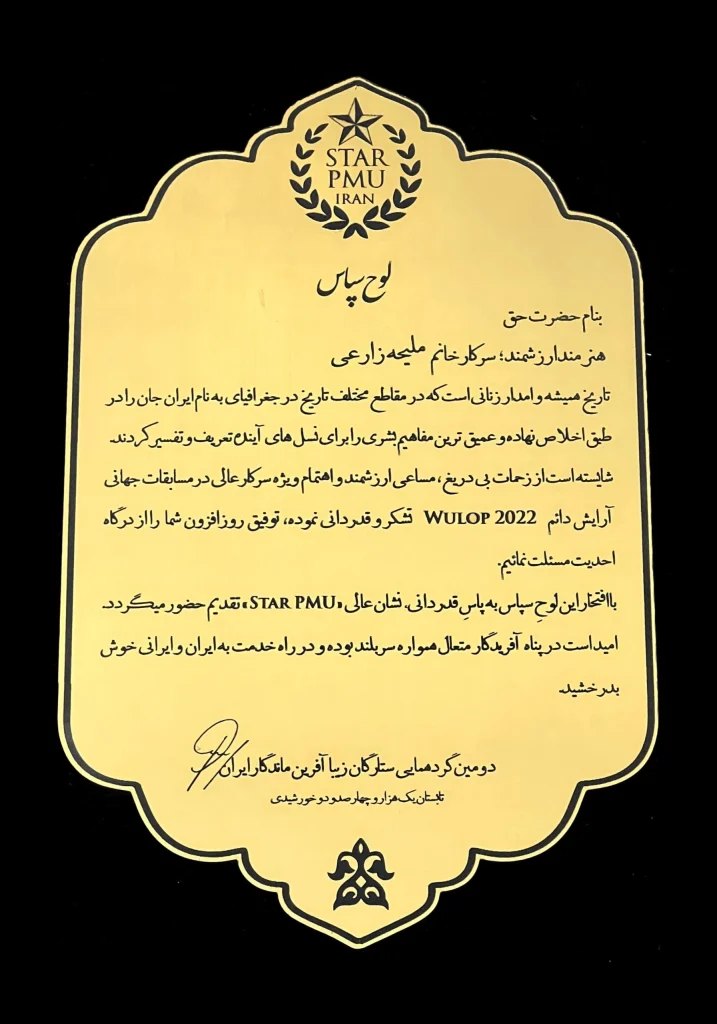 STAR
PMU
IRAN
لوح سپاس
بنام حضرت حق
هنرمند ارزشمند؛ سرکار خانم ملیحه زارعی
تاریخ همیشه وامدار زنانی است که در مقاطع مختلف تاریخ در جغرافیای به نام ایران جان را در
طبق اخلاص نهاده و عمیق ترین مفاهیم بشری را برای نسل های آینده تعریف و تفسیر کردند.
شایسته است از زحمات بی دریغ، مساعی ارزشمند و اهتمام ویژه سرکار عالی در مسابقات جهانی
آرایش دائم WULOP 2022 تشکر و قدردانی نموده، توفیق روز افزون شما را از درگاه
احدیت مسئلت نمائیم.
با افتخار این لوحِ سپاس به پاسِ قدردانی. نشان عالی «STAR PMU» تقدیم حضور میگردد.
امید است در پناه آفریدگار متعال همواره سربلند بوده و در راه خدمت به ایران و ایرانی خوش
بدرخشید.
دومین گردهمایی ستارگان زیبا آفرین ماندگار ایران
تابستان یک هزار و چهارصد و دو خورشیدی